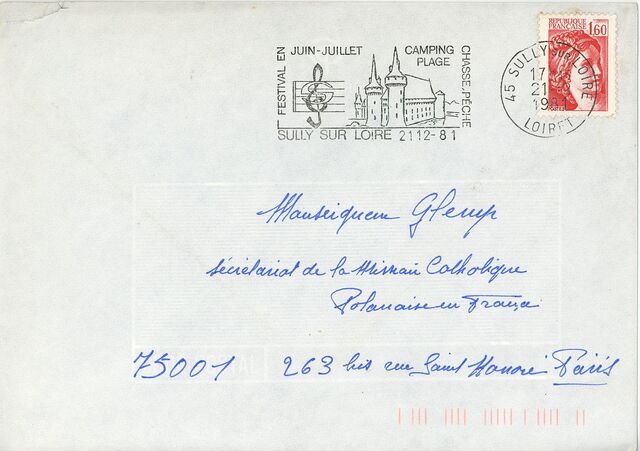 FESTIVAL EN JUIN-JUILLET
CAMPING
PLAGE
CHASSE, PÊCHE
SULLY SUR LOIRE 21 12-81
REPUBLIQUE
FRANÇAISE 1,60
45 SULLY SUR LOIRE
17
21
1981
LOIRET
Monseigneur Glemp
Sécrétariat de la Mission Catholique
Polonaise en France
75001 263 bis rue Saint Honoré Paris